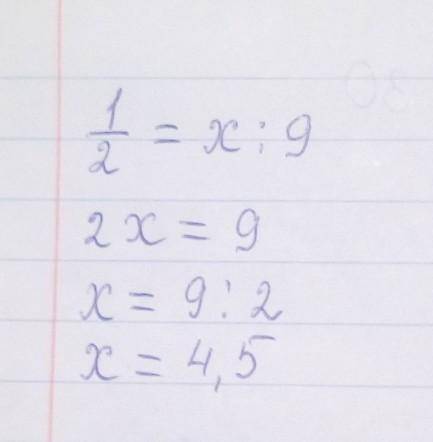 1/2 = x : 9
2x = 9
x = 9 : 2
x = 4,5